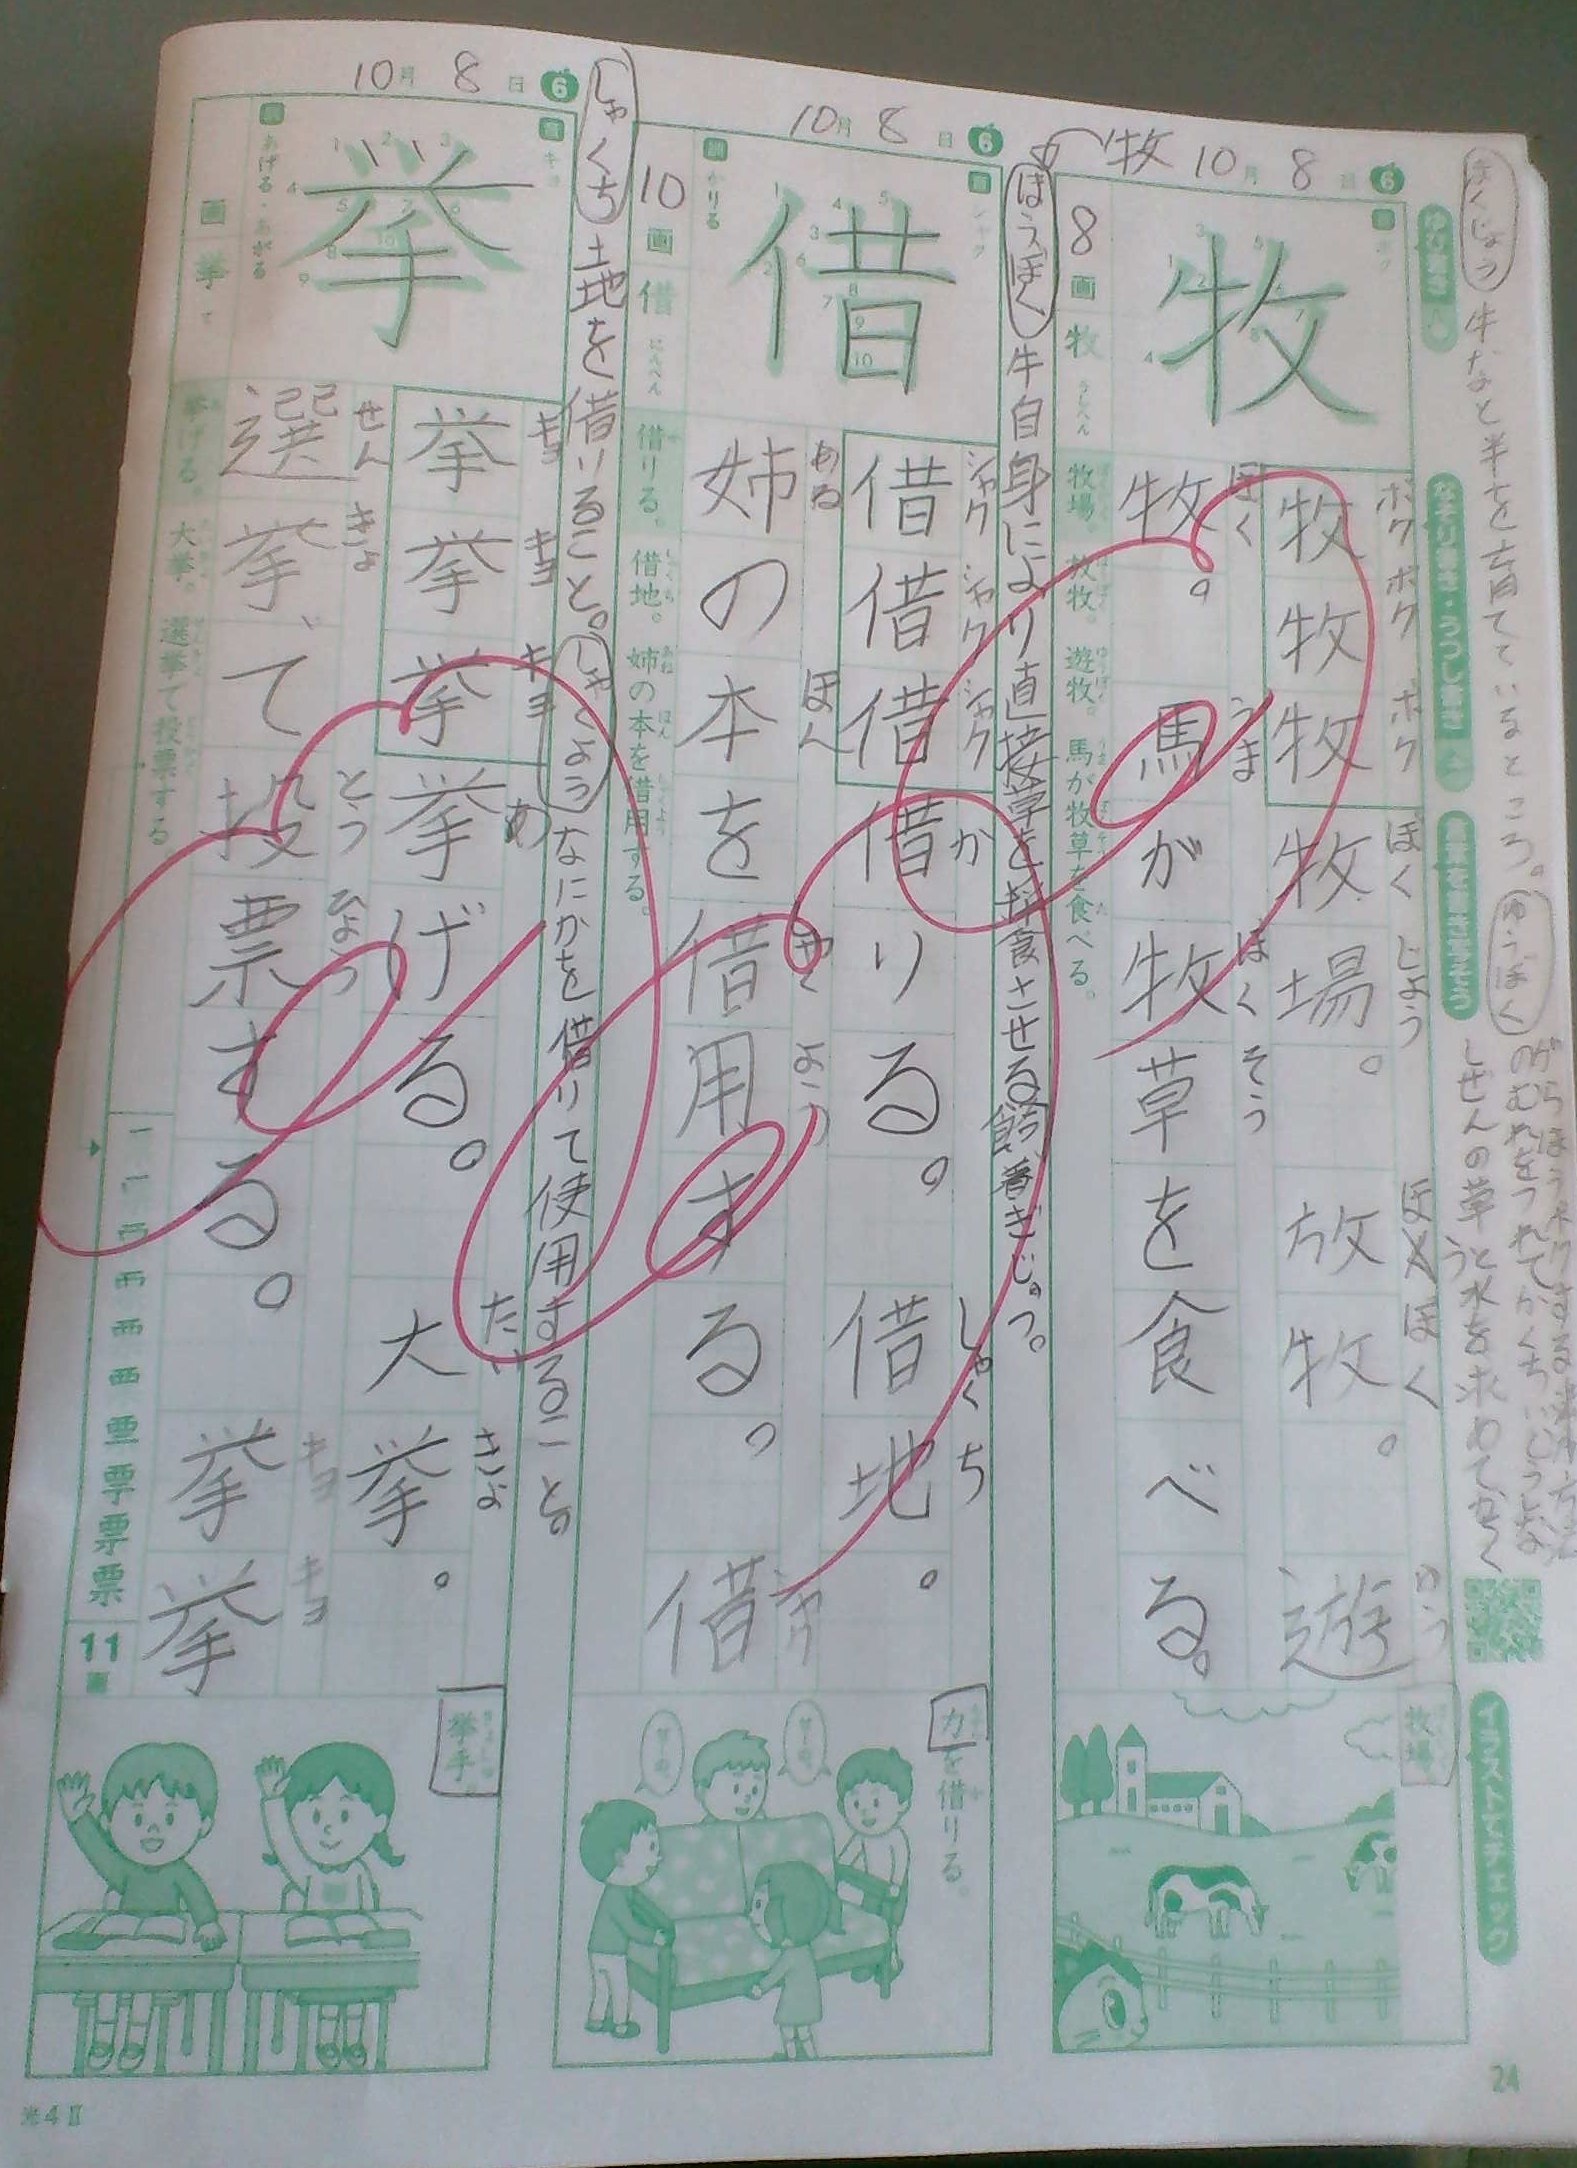 ほくじょう 牛など半を育てているところ。
ゆうぼく
しぜんの草と水を求めて
ゆびがき
なぞり書き・うつし書き
イラストでチェック
牧 10月 8日 6
8画 牧 うしへん
牧
ボク ボク ボク ぼく じょう ほう ぼく ゆう
牧牧牧牧場。放牧。遊
ぼく うま ぼく そう
牧。馬が牧草を食べる。
牧場。放牧。遊牧。馬が牧草を食べる。
牧場
ほうぼく 牛自身により直接草を採食させる
10月 8日 6
訓 かりる
10画 借 にんべん
借
シャク シャク シャク か しゃく ち
借借借借りる。借地。
あね ほん しゃく よう シャク
姉の本を借用する。借
借りる。借地。姉の本を借用する。
力を借りる。
しゃくち 土地を借りること。しゃくよう なにかを借りて使用すること。
10月 8日 6
音 キョ
訓 あげる・あがる
画 挙 て
挙
キョ キョ キョ あ たい きょ
挙挙挙挙げる。大挙。
せん きょ とう ひょう キョ キョ
選挙、て投票する。挙挙
挙げる。大挙。選挙で投票する
票 11画
挙手
24
光4Ⅱ